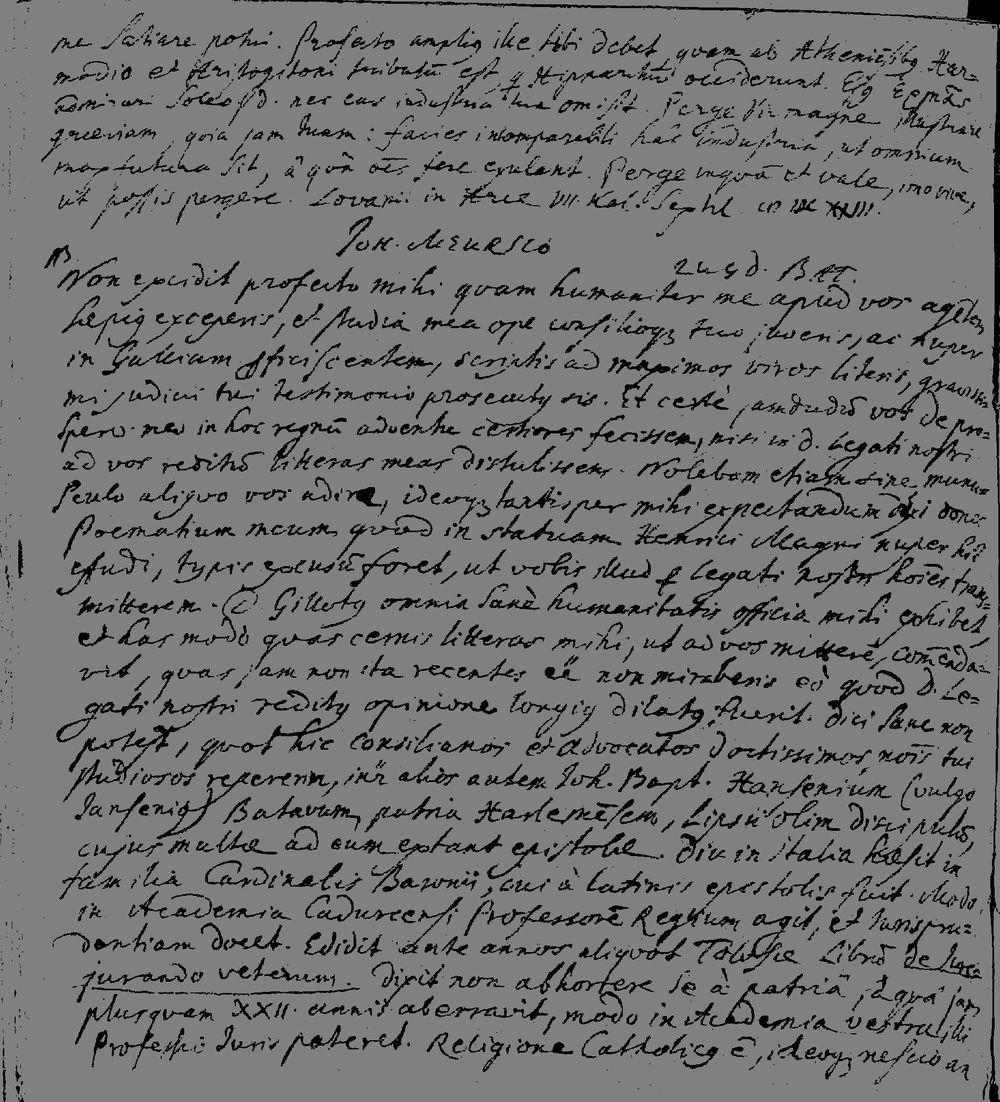 me satiare potui. Profecto ampliq ille tibi debet quam ab Atheniēsibq Har-
modio et Aristogitoni tributū est, q Hipparchū occiderunt. Eiq
admirari soleo sed nec eas industria tua omisit. Perge vir magne illustrare
graeciam, quia jam tuam: facies incomparabili hac industria, ut omnium
mox futura sit, â quâ oēs fere exulant. Perge inquā et vale, imo vive,
ut possis pergere. Lovanii in Arce VII. Kal. Septbl.
Joh. Meursio
Lugd. Bat.
Non excidit profecto mihi quam humaniter me apud vos agētem
sepiq exceperis, et studia mea ope consilioqȝ tuo juveris, ac nuper
in Galliam proficiscentem, scriptis ad maximos viros literis, gravissi-
mi judicii tui testimonio prosecutq sis. Et certè jamdudū vos de pro-
spero meo in hoc regnū adventu certiores fecissem, nisi in d. legati nostri
ad vos reditū litteras meas distulissem. Nolebam etiam sine munu-
sculo aliquo vos adire, ideoqȝ tantisper mihi expectandum duxi donec
Poematium meum quod in statuam Henrici Magni nuper hic
effudi, typis excusū foret, ut vobis illud p legati nostri hoīes trans-
mitterem. Cl Gillotq omnia sanè humanitatis officia mihi exhibet,
et has modò quas cernis litteras mihi, ut ad vos mitterē, comēda-
vit, quas jam non ita recentes eē non miraberis eò quod D. Le-
gati nostri reditq opinione longiq dilatq fuerit. Dici sane non
potest, quot hic Consiliarios et Advocatos doctissimos, noīs tui
studiosos repererim, intr alios autem Joh. Bapt. Hansenium (vulgo
Jansenio) Batavum, patria Harlemēsem, Lipsii olim discipulū,
cujus multae ad eum extant epistolae. Diu in Italia haesit in
familia Cardinalis Baronii, cui à latinis epistolis fuit. Modo
in Academia Cadurcensi Professorē Regium agit, et Jurispru-
dentiam docet. Edidit ante annos aliquot Tolosae Librū de jure
jurando veterum. Dixit non abhorrere se à patriâ, à quâ jam
plusquam XXII annis aberravit, modo in Academia vestra illi
Professio Juris pateret. Religione Catholicq ē, ideoqȝ nescio an